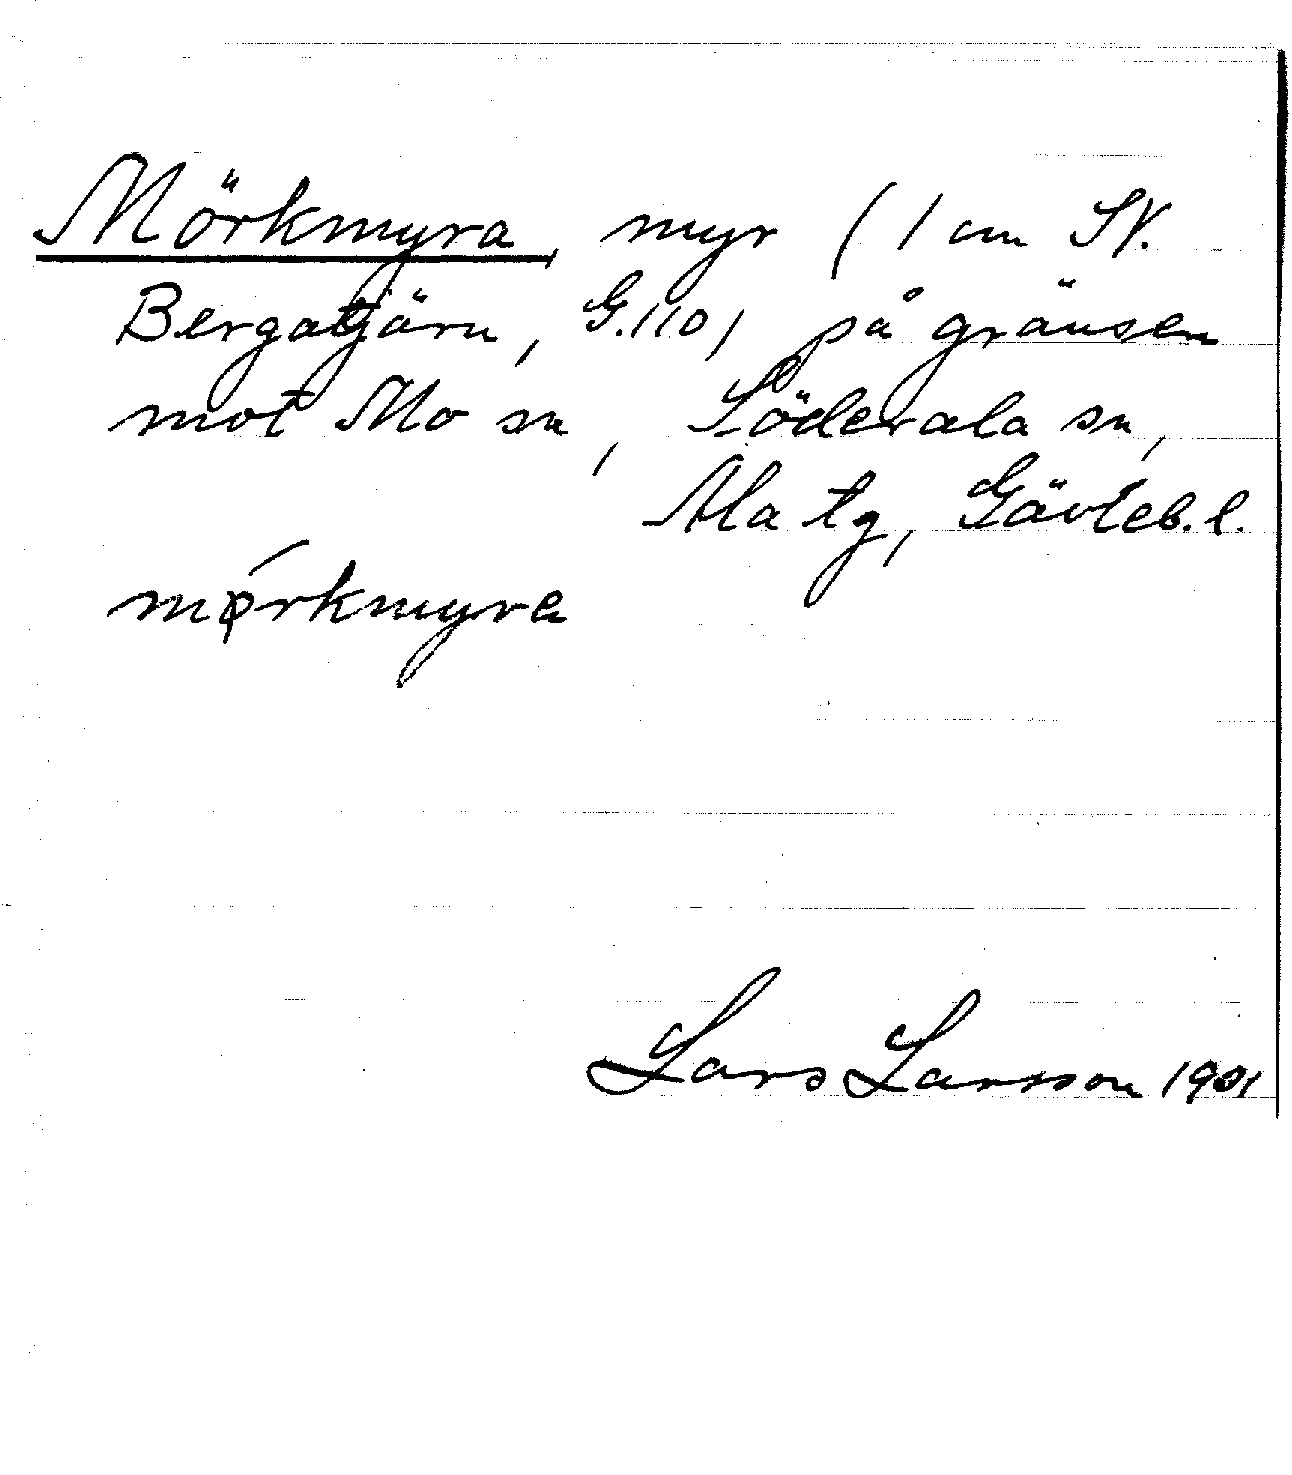 Mörkmyra, myr (1 cm SV.
Bergatjärn, G.110) på gränsen
mot Mo sn, Söderala sn,
Ala tg, Gävleb.l.
mǿrkmyra
Lars Larsson 1901